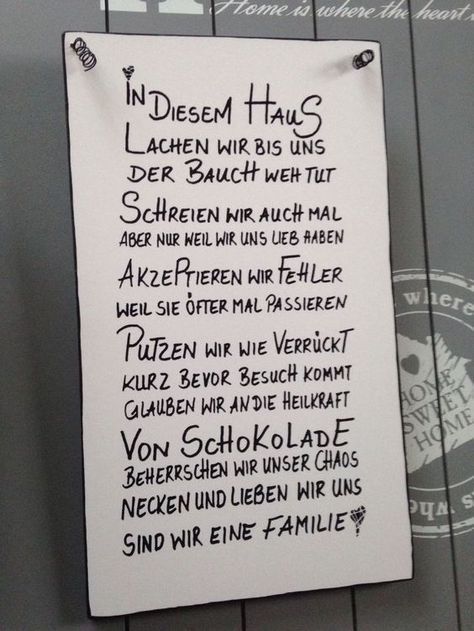 Home is where the heart
IN DIESEM HAUS
LACHEN WIR BIS UNS
DER BAUCH WEH TUT
SCHREIEN WIR AUCH MAL
ABER NUR WEIL WIR UNS LIEB HABEN
AKZEPTIEREN WIR FEHLER
WEIL SIE ÖFTER MAL PASSIEREN
PUTZEN WIR WIE VERRÜCKT
KURZ BEVOR BESUCH KOMMT
GLAUBEN WIR AN DIE HEILKRAFT
VON SCHOKOLADE
BEHERRSCHEN WIR UNSER CHAOS
NECKEN UND LIEBEN WIR UNS
SIND WIR EINE FAMILIE
where
HOME
SWEET
HOME